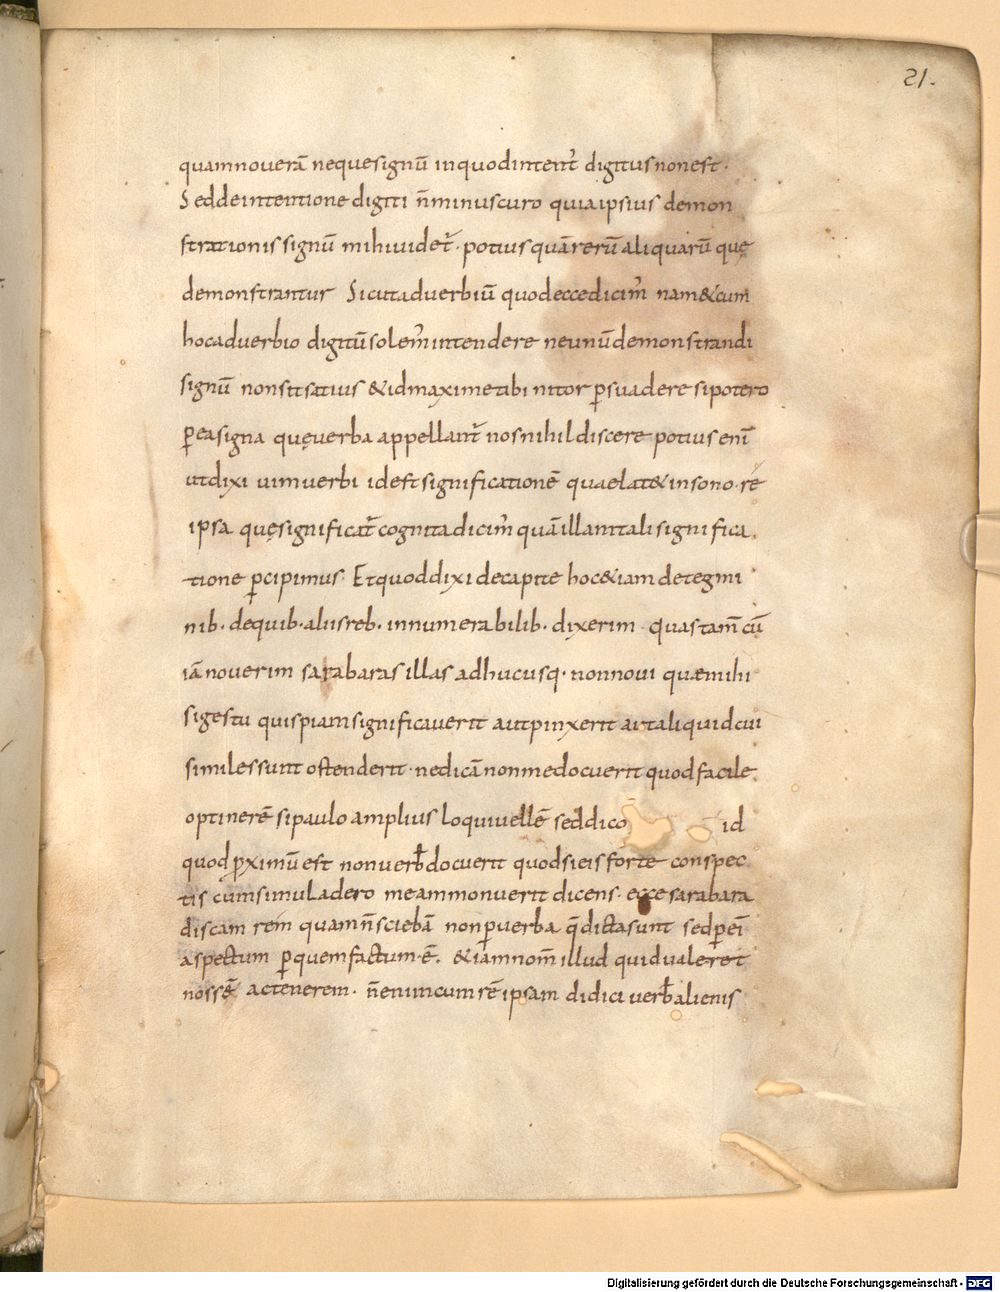 21.
quamnouerā nequesignū inquodintent̄ digitusnonest.
Seddeintentione digiti n̄minuscuro quiaipsius demon
strationis signū mihiuidet̄. potiusquārerū aliquarū quę
demonstrantur Sicutaduerbiū quodeccedicim̄ nam&cum
hocaduerbio digitūsolem̄intendere neunūdemonstrandi
signū nonsitsatius &idmaximetibi nitor p̄suadere sipotero
p̄easigna quęuerba appellant̄ nosnihildiscere potius enī
utdixi uimuerbi idestsignificationē quaelat& insono. rē
ipsa quęsignificat̄ cognitadicim̄ quāillamtali significa.
tione p̄cipimus. Etquoddixi decapite hoc&iam detegmi
nib. dequib. aliisreb. innumerabilib. dixerim. quas tam̄ cū
iānouerim sarabaras illas adhucusq. nonnoui quæmihi
sigestu quispiamsignificauerit autpinxerit autaliquidcui
similessunt ostenderit. nedicānonmedocuerit quodfacile
optinerē sipaulo amplius loquiuellē seddico id
quodp̄ximū est nonuerb̄docuerit quodsieis forte conspec
tis cumsimuladero meammonuerit dicens. ecce sarabara
discam rem quamn̄sciebā nonp̄uerba q̄dictasunt sedp̄eī
aspectum p̄quemfactum.ē. &iamnom̄ illud quidualeret
nossē actenerem. n̄enimcumrē ipsam didici uerb̄alienis
Digitalisierung gefördert durch die Deutsche Forschungsgemeinschaft - DFG